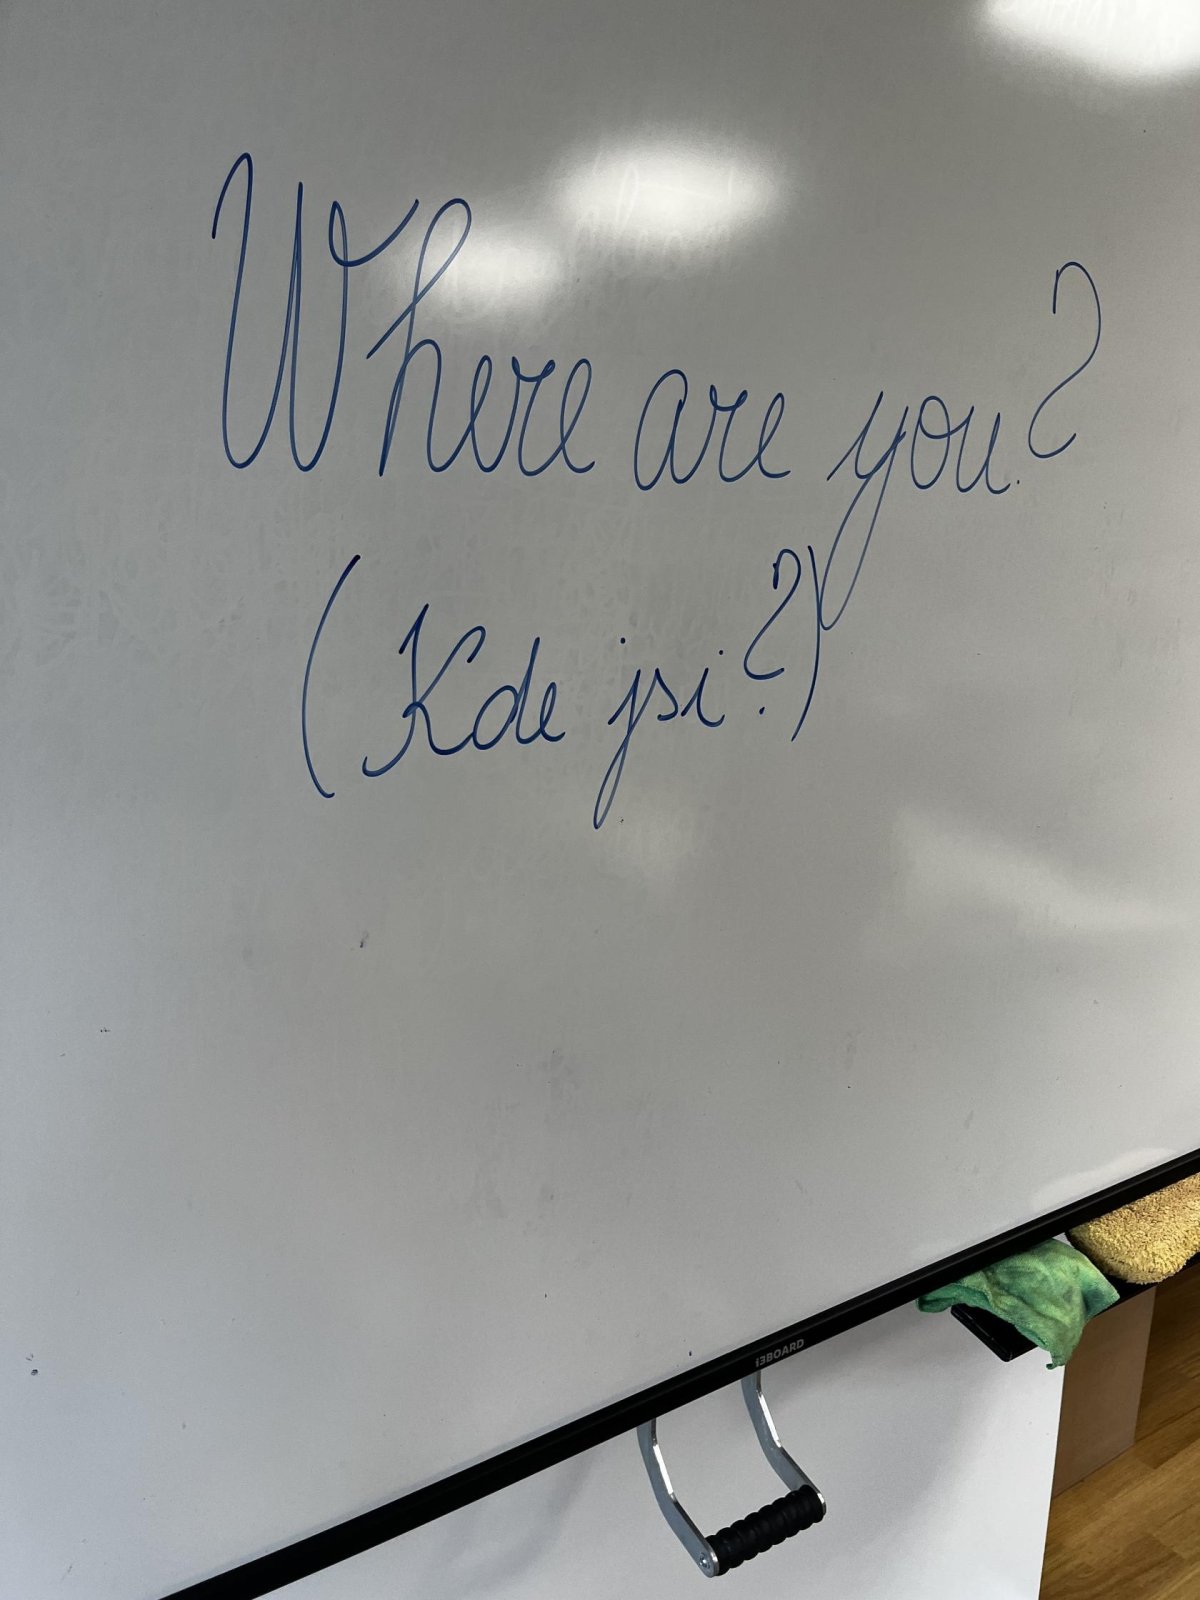 Where are you?
(Kde jsi?)
i3BOARD